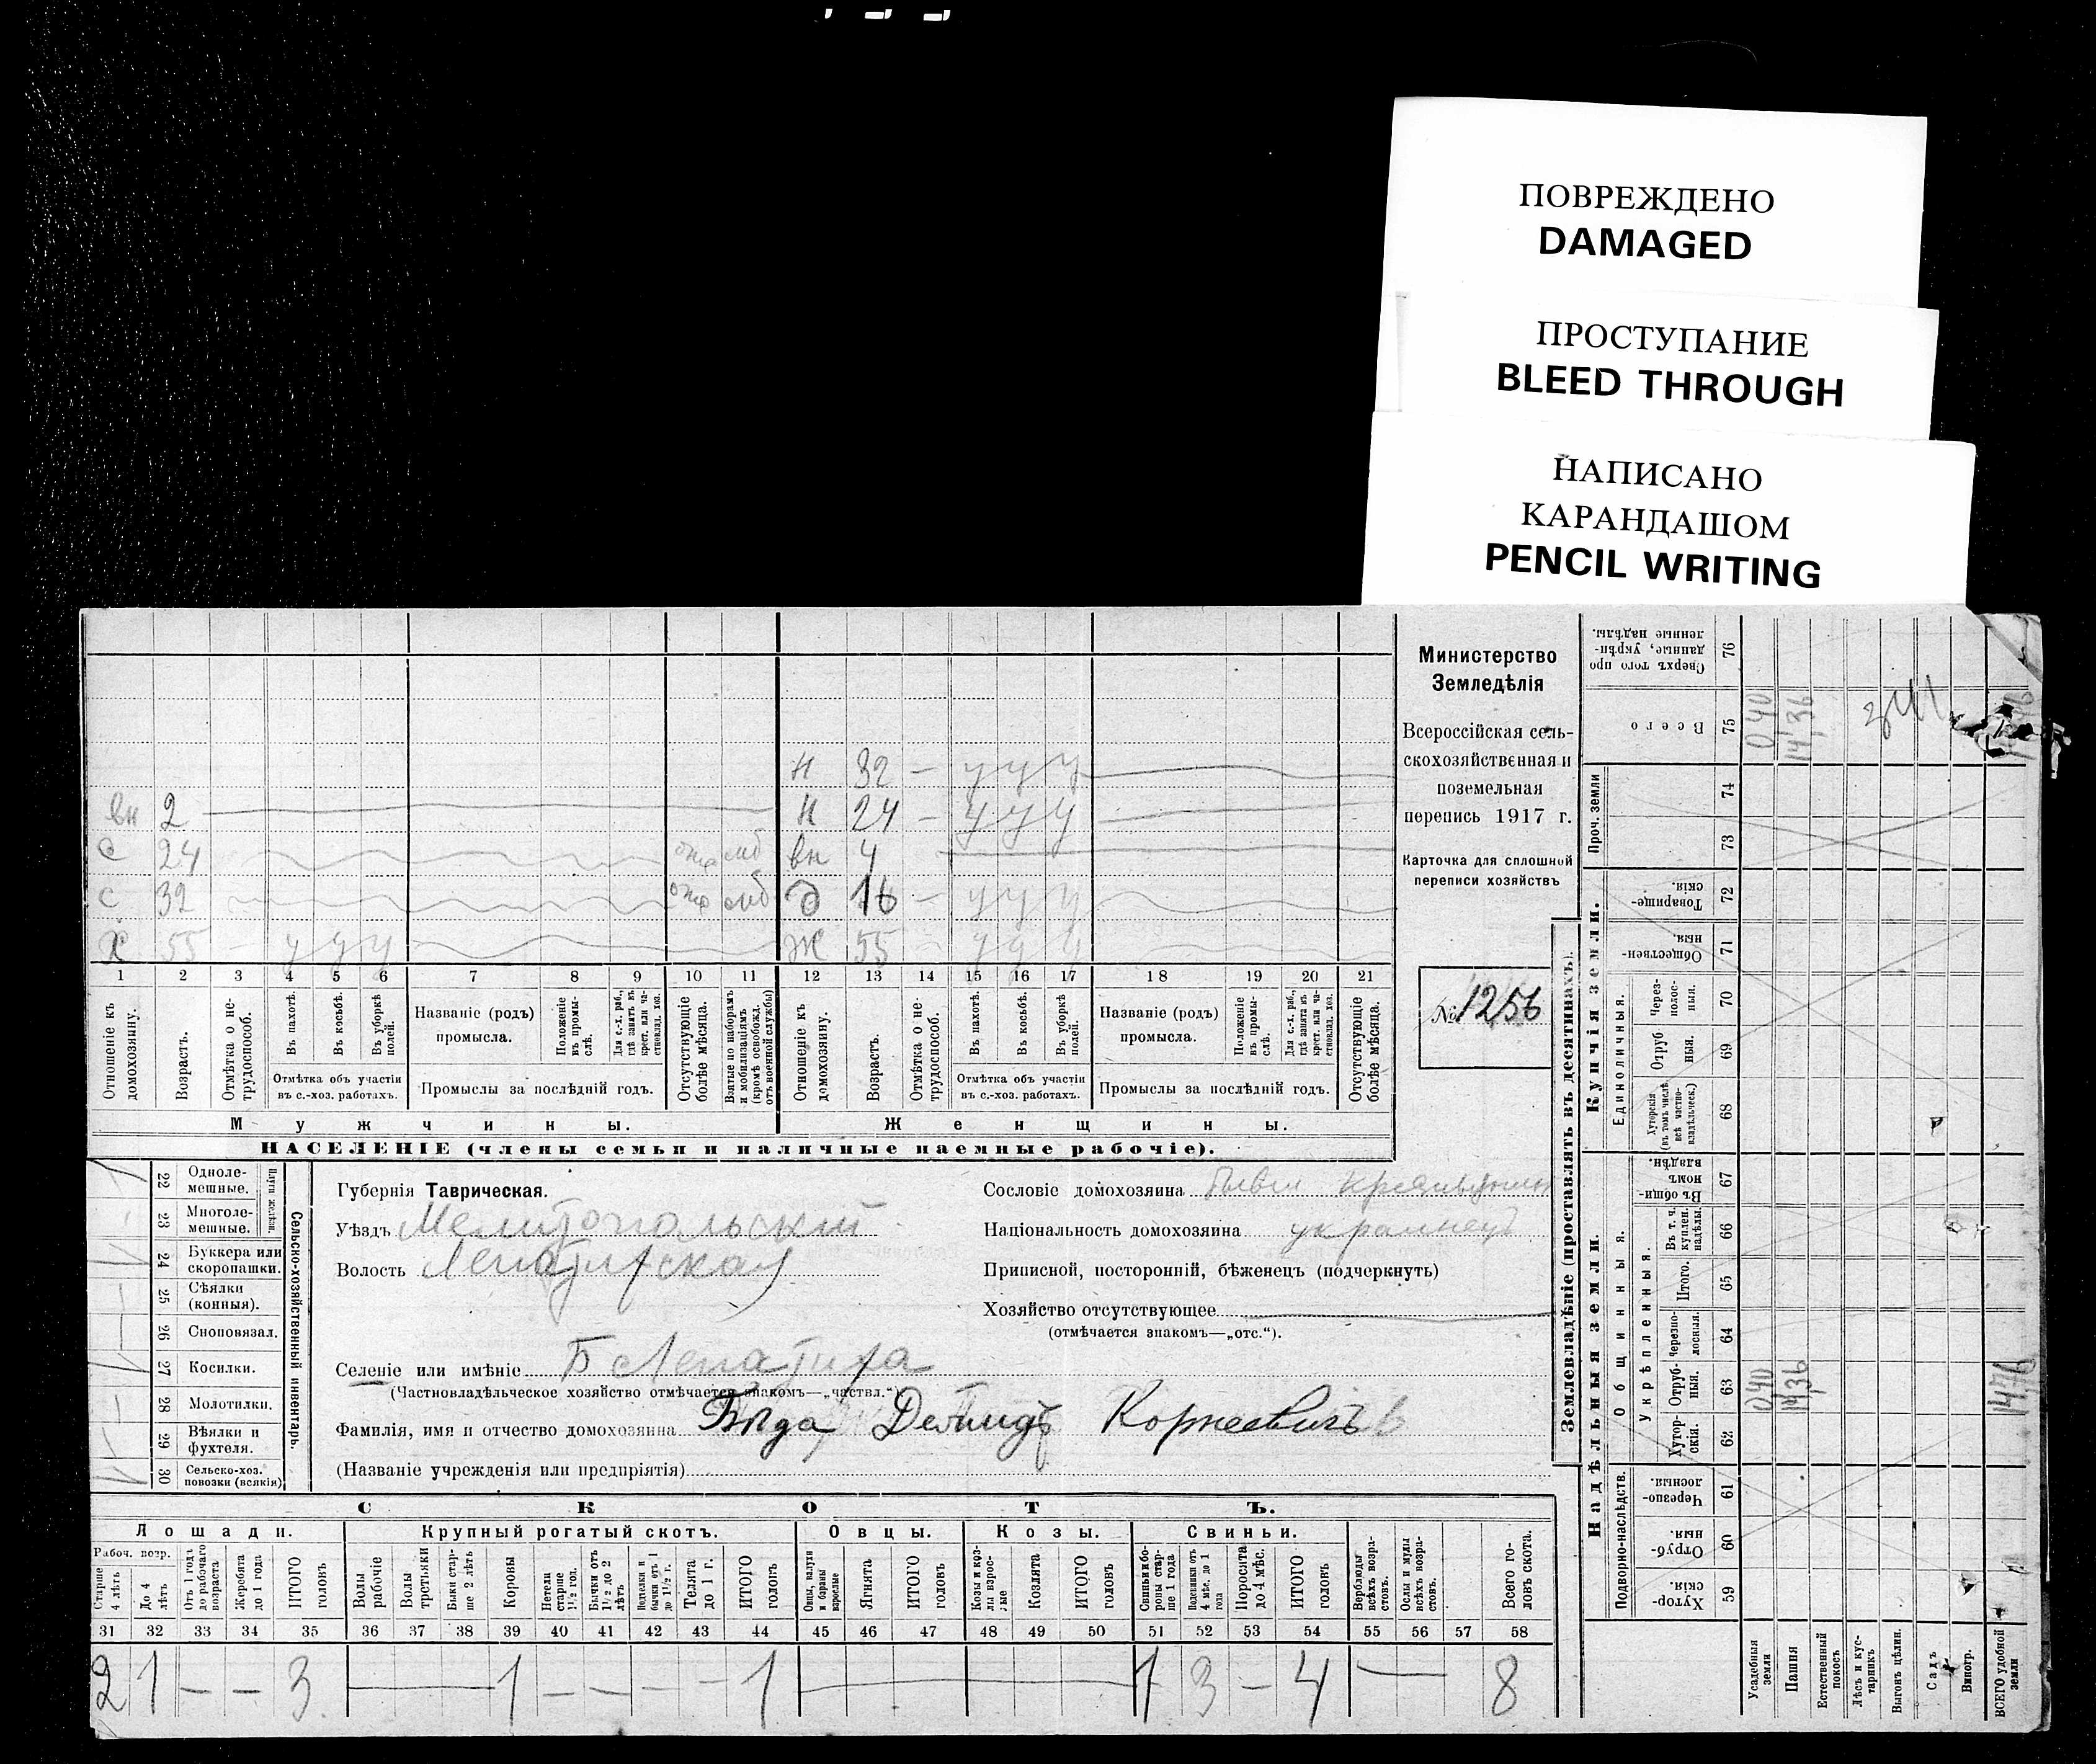 ПОВРЕЖДЕНО
DAMAGED
ПРОСТУПАНИЕ
BLEED THROUGH
НАПИСАНО
КАРАНДАШОМ
PENCIL WRITING
Министерство
Земледѣлія
Всероссійская сель-
скохозяйственная и
поземельная
перепись 1917 г.
Карточка для сплошной
переписи хозяйствъ
№ 1256
н 32 — у у у
вн 2 н 24 — у у у
с 24 вн 4
с 32 д 16 — у у у
х 55 — у у у ж 55 — у у у
1 2 3 4 5 6 7 8 9 10 11 12 13 14 15 16 17 18 19 20 21
Отношеніе къ домохозяину.
Возрастъ.
Отмѣтка о не-трудоспособ.
Въ пахотѣ.
Въ косьбѣ.
Въ уборкѣ полей.
Отмѣтка объ участіи
въ с.-хоз. работахъ.
Названіе (родъ)
промысла.
Положеніе въ промы-слѣ.
Для с.-х. раб., гдѣ занятъ въ крест. или ча-стновлад. хоз.
Промыслы за послѣдній годъ.
Отсутствующіе болѣе мѣсяца.
Взятые по наборамъ и мобилизаціямъ (кромѣ освобожд. отъ военной службы)
Отношеніе къ домохозяину.
Возрастъ.
Отмѣтка о не-трудоспособ.
Въ пахотѣ.
Въ косьбѣ.
Въ уборкѣ полей.
Отмѣтка объ участіи
въ с.-хоз. работахъ.
Названіе (родъ)
промысла.
Положеніе въ промы-слѣ.
Для с.-х. раб., гдѣ занята въ крест. или ча-стновлад. хоз.
Промыслы за послѣдній годъ.
Отсутствующіе болѣе мѣсяца.
Мужчины. Женщины.
НАСЕЛЕНІЕ (члены семьи и наличные наемные рабочіе).
Сельско-хозяйственный инвентарь.
22 Одноле-мешные.
23 Многоле-мешные.
24 Буккера или скоропашки.
25 Сѣялки (конныя).
26 Сноповязал.
27 Косилки.
28 Молотилки.
29 Вѣялки и фухтеля.
30 Сельско-хоз. повозки (всякія)
Губернія Таврическая.
Уѣздъ Мелитопольскій
Волость Лепатихская
Селеніе или имѣніе Б Лепатиха
(Частновладѣльческое хозяйство отмѣчается знакомъ—„частвл.“)
Фамилія, имя и отчество домохозяина Бѣда Демидъ Корнеевичъ
(Названіе учрежденія или предпріятія)
Сословіе домохозяина
Національность домохозяина украинецъ
Приписной, посторонній, бѣженецъ (подчеркнуть)
Хозяйство отсутствующее
(отмѣчается знакомъ—„отс.“).
СКОТЪ.
Лошади. Крупный рогатый скотъ. Овцы. Козы. Свиньи.
Рабоч. возр.
Старше 4 лѣтъ
До 4 лѣтъ
Отъ 1 года до рабочаго возраста
Жеребята до 1 года
ИТОГО головъ
Волы рабочіе
Волы третьяки
Быки стар-ше 2 лѣтъ
Коровы
Нетели старше 1½ год.
Бычки отъ 1½ до 2 лѣтъ
Телята до 1 г.
ИТОГО головъ
Ягнята
ИТОГО головъ
Козлята
ИТОГО головъ
Поросята до 4 мѣс.
ИТОГО головъ
Верблюды всѣхъ возра-стовъ.
Ослы и мулы всѣхъ возра-стовъ.
Всего го-ловъ скота.
31 32 33 34 35 36 37 38 39 40 41 42 43 44 45 46 47 48 49 50 51 52 53 54 55 56 57 58
2 1 — — 3 1 — — — — 1 1 3 — 4 — 8
Землевладѣніе (проставлять въ десятинахъ).
Надѣльныя земли.
Купчія земли.
Проч. земли
Подворно-наслѣдств.
Общинныя.
Укрѣпленныя.
Единоличныя.
Сверхъ того про данные, укрѣп-ленные надѣлы. 76
Всего 75 0 40 14,36
74
73
Товарище-скія. 72
Обществен-ныя. 71
Через-полос-ныя. 70
Отруб ныя. 69
Хуторскія (въ томъ числѣ всѣ частно-владѣльческ.) 68
Въ общин-номъ владѣн. 67
Въ т. ч. куплен. надѣлы. 66
Итого. 65
Черезпо-лосныя. 64
Отруб-ныя. 63 0 40 14,36 14,76
Хутор-скія. 62
Черезпо-лосныя. 61
Отруб-ныя. 60
Хутор-скія. 59
Усадебныя земли
Пашня
Естественный покосъ
Лѣсъ и кус-тарникъ
Выгонъ цѣлин.
Садъ
Виногр.
ВСЕГО удобной земли